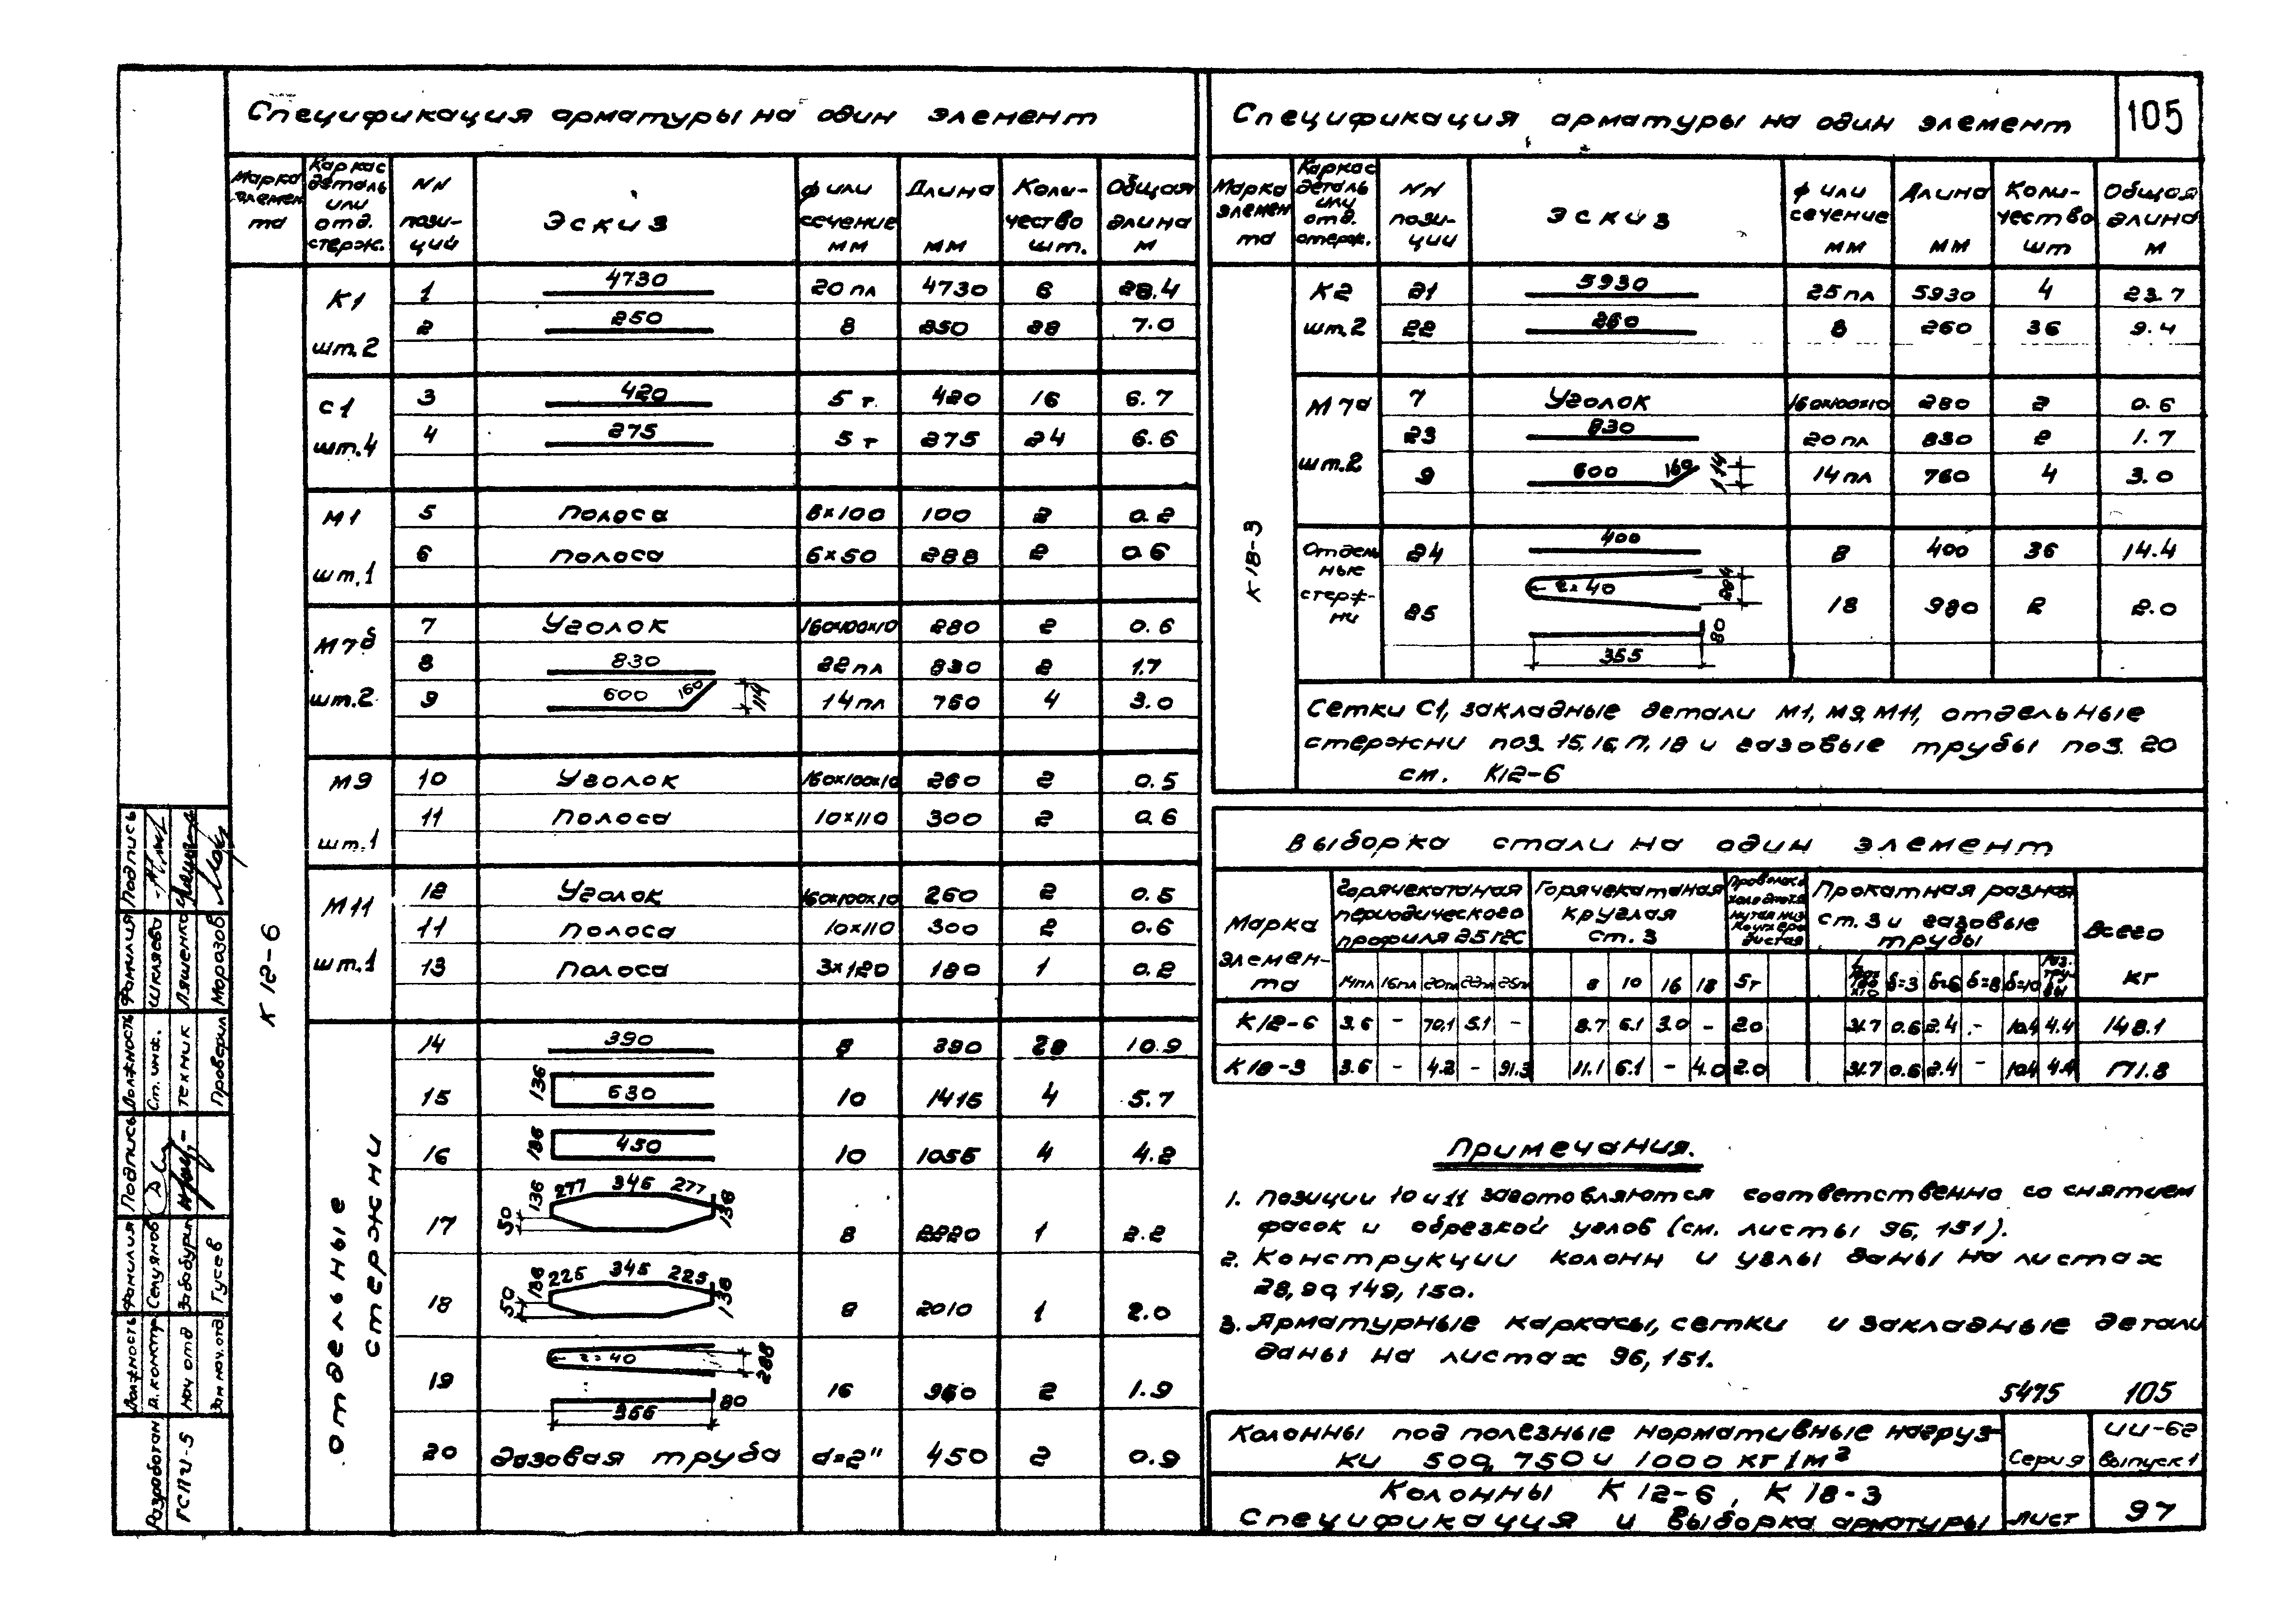 Спецификация арматуры на один элемент
Марка элемента | Каркас деталь или отд. стерж. | NN позиций | Эскиз | ф или сечение мм | Длина мм | Количество шт. | Общая длина м
К12-6
К1 шт.2
1 | 4730 | 20пл | 4730 | 6 | 28.4
2 | 250 | 8 | 250 | 28 | 7.0
С1 шт.4
3 | 420 | 5т | 420 | 16 | 6.7
4 | 275 | 5т | 275 | 24 | 6.6
М1 шт.1
5 | Полоса | 8×100 | 100 | 2 | 0.2
6 | Полоса | 6×50 | 288 | 2 | 0.6
М7б шт.2
7 | Уголок | 160×100×10 | 280 | 2 | 0.6
8 | 830 | 22пл | 830 | 2 | 1.7
9 | 600 160 114 | 14пл | 760 | 4 | 3.0
М9 шт.1
10 | Уголок | 160×100×10 | 260 | 2 | 0.5
11 | Полоса | 10×110 | 300 | 2 | 0.6
М11 шт.1
12 | Уголок | 160×100×10 | 260 | 2 | 0.5
11 | Полоса | 10×110 | 300 | 2 | 0.6
13 | Полоса | 3×120 | 180 | 1 | 0.2
Отдельные стержни
14 | 390 | 8 | 390 | 28 | 10.9
15 | 136 630 | 10 | 1415 | 4 | 5.7
16 | 136 450 | 10 | 1055 | 4 | 4.2
17 | 50 136 277 345 277 136 | 8 | 2220 | 1 | 2.2
18 | 50 136 225 345 225 136 | 8 | 2010 | 1 | 2.0
19 | r=40 288 366 80 | 16 | 960 | 2 | 1.9
20 | Газовая труба | d=2" | 450 | 2 | 0.9
Спецификация арматуры на один элемент
105
Марка элемента | Каркас деталь или отд. стерж. | NN позиции | Эскиз | ф или сечение мм | Длина мм | Количество шт | Общая длина м
К18-3
К2 шт.2
21 | 5930 | 25пл | 5930 | 4 | 23.7
22 | 260 | 8 | 260 | 36 | 9.4
М7а шт.2
7 | Уголок | 160×100×10 | 280 | 2 | 0.6
23 | 830 | 20пл | 830 | 2 | 1.7
9 | 600 160 114 | 14пл | 760 | 4 | 3.0
Отдельные стержни
24 | 400 | 8 | 400 | 36 | 14.4
25 | r=40 284 80 355 | 18 | 980 | 2 | 2.0
Сетки С1, закладные детали М1, М9, М11, отдельные
стержни поз. 15, 16, 17, 18 и газовые трубы поз. 20
см. К12-6
Выборка стали на один элемент
Марка элемента | Горячекатаная периодического профиля 25ГС | Горячекатаная круглая ст. 3 | Проволока холоднотянутая низкоуглеродистая | Прокатная разная ст. 3 и газовые трубы | Всего кг
14пл | 16пл | 20пл | 22пл | 25пл | 8 | 10 | 16 | 18 | 5т | δ=3 | δ=6 | δ=8 | δ=10 | Газ. трубы
К12-6 | 3.6 | - | 70.1 | 5.1 | - | 8.7 | 6.1 | 3.0 | - | 2.0 | 31.7 | 0.6 | 2.4 | - | 10.4 | 4.4 | 148.1
К18-3 | 3.6 | - | 4.2 | - | 91.3 | 11.1 | 6.1 | - | 4.0 | 2.0 | 31.7 | 0.6 | 2.4 | - | 10.4 | 4.4 | 171.8
Примечания.
1. Позиции 10 и 11 заготовляются соответственно со снятием
фасок и обрезкой углов (см. листы 96, 151).
2. Конструкции колонн и узлы даны на листах
28, 90, 149, 150.
3. Арматурные каркасы, сетки и закладные детали
даны на листах 96, 151.
5475 105
Колонны под полезные нормативные нагруз-
ки 500, 750 и 1000 кг/м²
Серия
ИИ-62
Выпуск 1
Колонны К 12-6, К 18-3
Спецификация и выборка арматуры
Лист
97
Должность Фамилия Подпись Должность Фамилия Подпись
Семуянов Ст. инж. Шкляева
Нач отд Техник Ляшенко
Зам нач. отд. Гусев Проверил Моразов
Разработан
ГСПИ-5